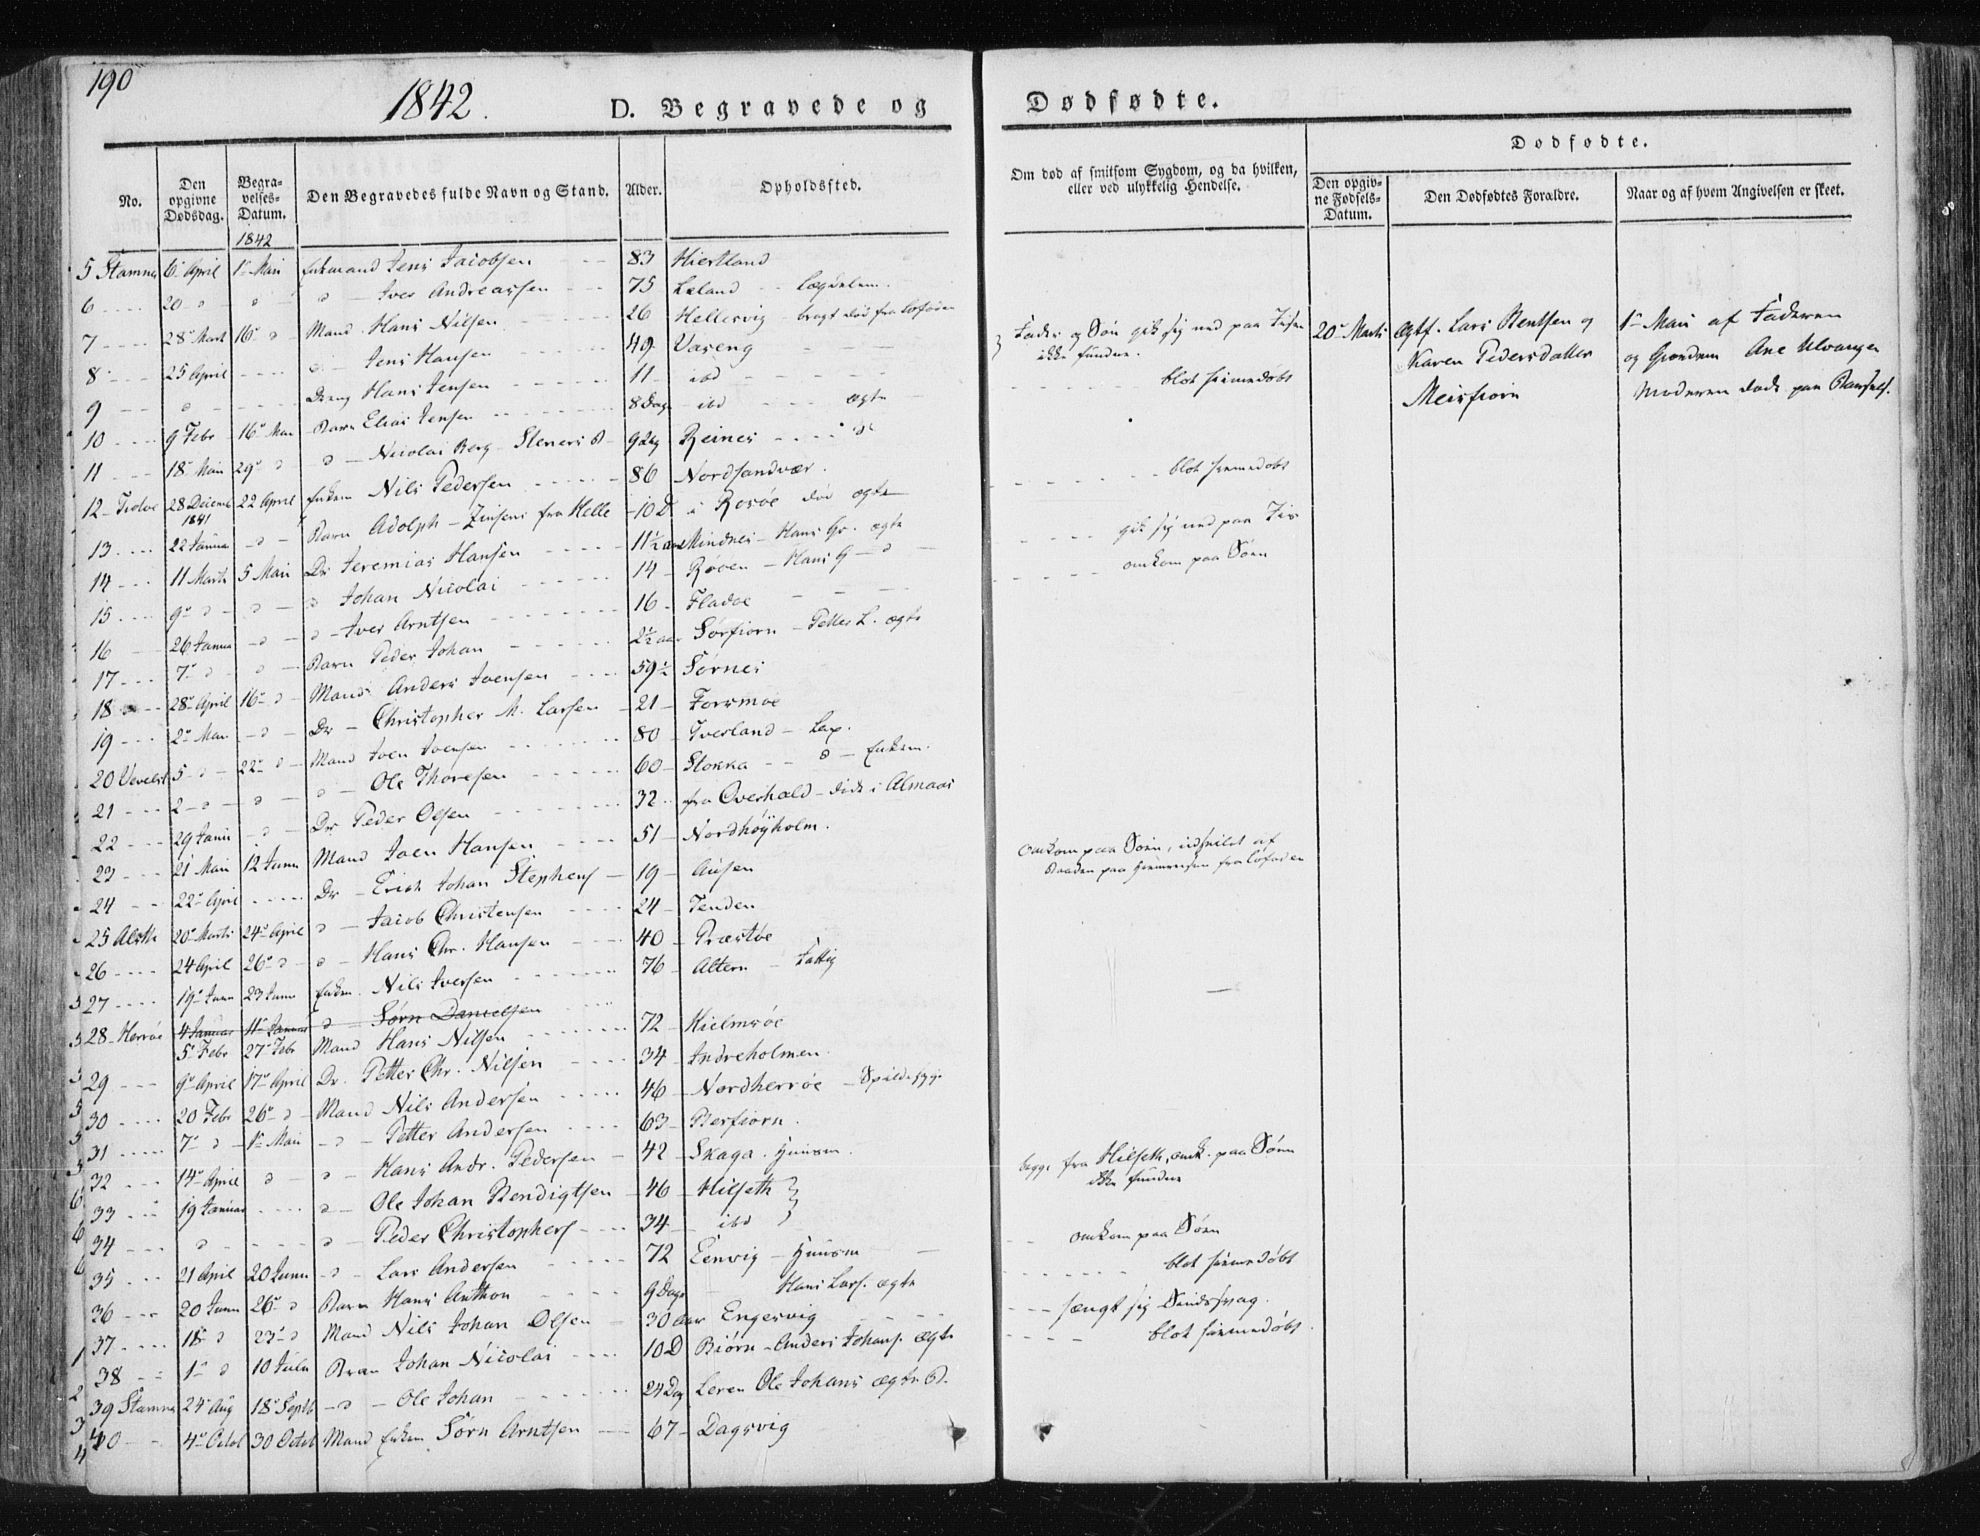 190
1842.
D. Begravede og
Dødfødte.
No.
Den opgivne Dødsdag.
Begravelses-Datum.
Den Begravedes fulde Navn og Stand.
Alder.
Opholdssted.
Om død af smitsom Sygdom, og da hvilken, eller ved ulykkelig Hendelse.
Dødfødte.
Den opgivne Fødsels-Datum.
Den Dødfødtes Forældre.
Naar og af hvem Angivelsen er skeet.
1842
5 Stamnes 6 April 1 Mai Enkemand Jens Jacobsen 83 Hiestland
6 20 " " " Iver Andreassen 75 Leland Lægdslem
7 28 Mart 16 " Mand Hans Nilsen 26 Hellesvig bragt død fra Lofoten
8 25 April " Jens Hansen 49 Vaseng
9 " Dreng Hans Jensen 11 ibd
10 9 Febr 16 Mai Barn Elias Jensen 8 Dage ibd ægte
11 18 Mai 29 " " Nicolai Berg Steners B 9 Dg Reines
12 Tiøtøe 28 Decemb 1841 22 April Enkem Nils Pedersen 86 Nordsandvær.
13 22 Janua " Barn Adolph Zinsens fra Helle 10 D i Rosøe død ægte
14 11 Marts 5 Mai Dr Jeremias Hansen 11½ aar Mindnes Hans Gr. ægte
15 9 " " " Johan Nicolai 14 Røven Hans G
16 26 Janua " " Iver Arntsen 16 Fladøe
17 7 " " Barn Peder Johan 2½ aar Sørfiorn Petter L. ægte
18 28 April 16 " Mand Anders Ivensen 59½ Sørnes
19 2 Mai " Dr Christopher M. Larsen 21 Forsmoe
20 Vevelst 5 " 22 " Mand Joen Joensen 80 Iversland Lap.
21 2 " " " Ole Thoresen 60 Stokka " Enkem.
22 29 Janu " Dr Peder Olsen 32 fra Overhald døde i Almaas
23 21 Mai 12 Junn Mand Joen Hansen 51 Nordhøyholm.
24 22 April Dr Erich Johan Stephens 19 Ausen
25 Alsth 20 Marts 24 April " Jacob Christensen 24 Tenden
26 24 April 26 " " Hans Chr. Hansen 40 Præstøe
27 19 Junn 23 Junn Enkm. Nils Iversen 76 Altern Fattig
28 Herrøe 4 Januar 11 Januar " Sørn Danielsen
5 Febr 27 Febr Mand Hans Nilsen 72 Hielmsøe
29 9 April 17 April Dr. Petter Chr. Nilsen 34 Indreholmen
30 20 Febr 26 " Mand Nils Andersen 46 Nordherrøe Spedalsk
31 7 " 1 Mai " Petter Andersen 63 Berfiorn.
32 14 April " " Hans Andr. Pedersen 42 Skaga. Huusm.
33 19 Januar " Ole Johan Bendigtsen 46 Hilseth
34 " " Peder Christophers 34 ibd
35 21 April 20 Junn " Lars Andersen 72 Eenvig Huusm
36 20 Junn 26 " Barn Hans Anthon 9 Dage Hans Lars. ægte
37 18 " 23 " Mand Nils Johan Olsen 30 Aar Engesvig
38 1 " 10 Julii Barn Johan Nicolai 10 D Biørn Anders Johans. ægte
39 Stamnes 24 Aug 18 Septb " Ole Johan 24 Dag Leren Ole Johans ægte B.
40 4 Octob 30 Octob Mand Enkem Sørn Arntsen 67 Dagsvig
Fader og Søn gik sig ned paa Iisen
ikke funden.
blot hiemmedøbt
blot hiemmedøbt
gik sig ned paa Iis
omkom paa Søen
omkom paa Søen, udspildt af
Baaden paa Hiemreisen fra Lofoden
begge fra Hilseth, omk. paa Søen
ikke fundne
omkom paa Søen
blot hiemmedøbt
hængt sig Sindssvag.
blot hiemmedøbt.
20 Marts Ægtf. Lars Bentsen og
Karen Pedersdatter
Meisfiorn
1 Mai af Faderen
og Grandem Ane Ulvangen
Moderen døde paa Barsels.